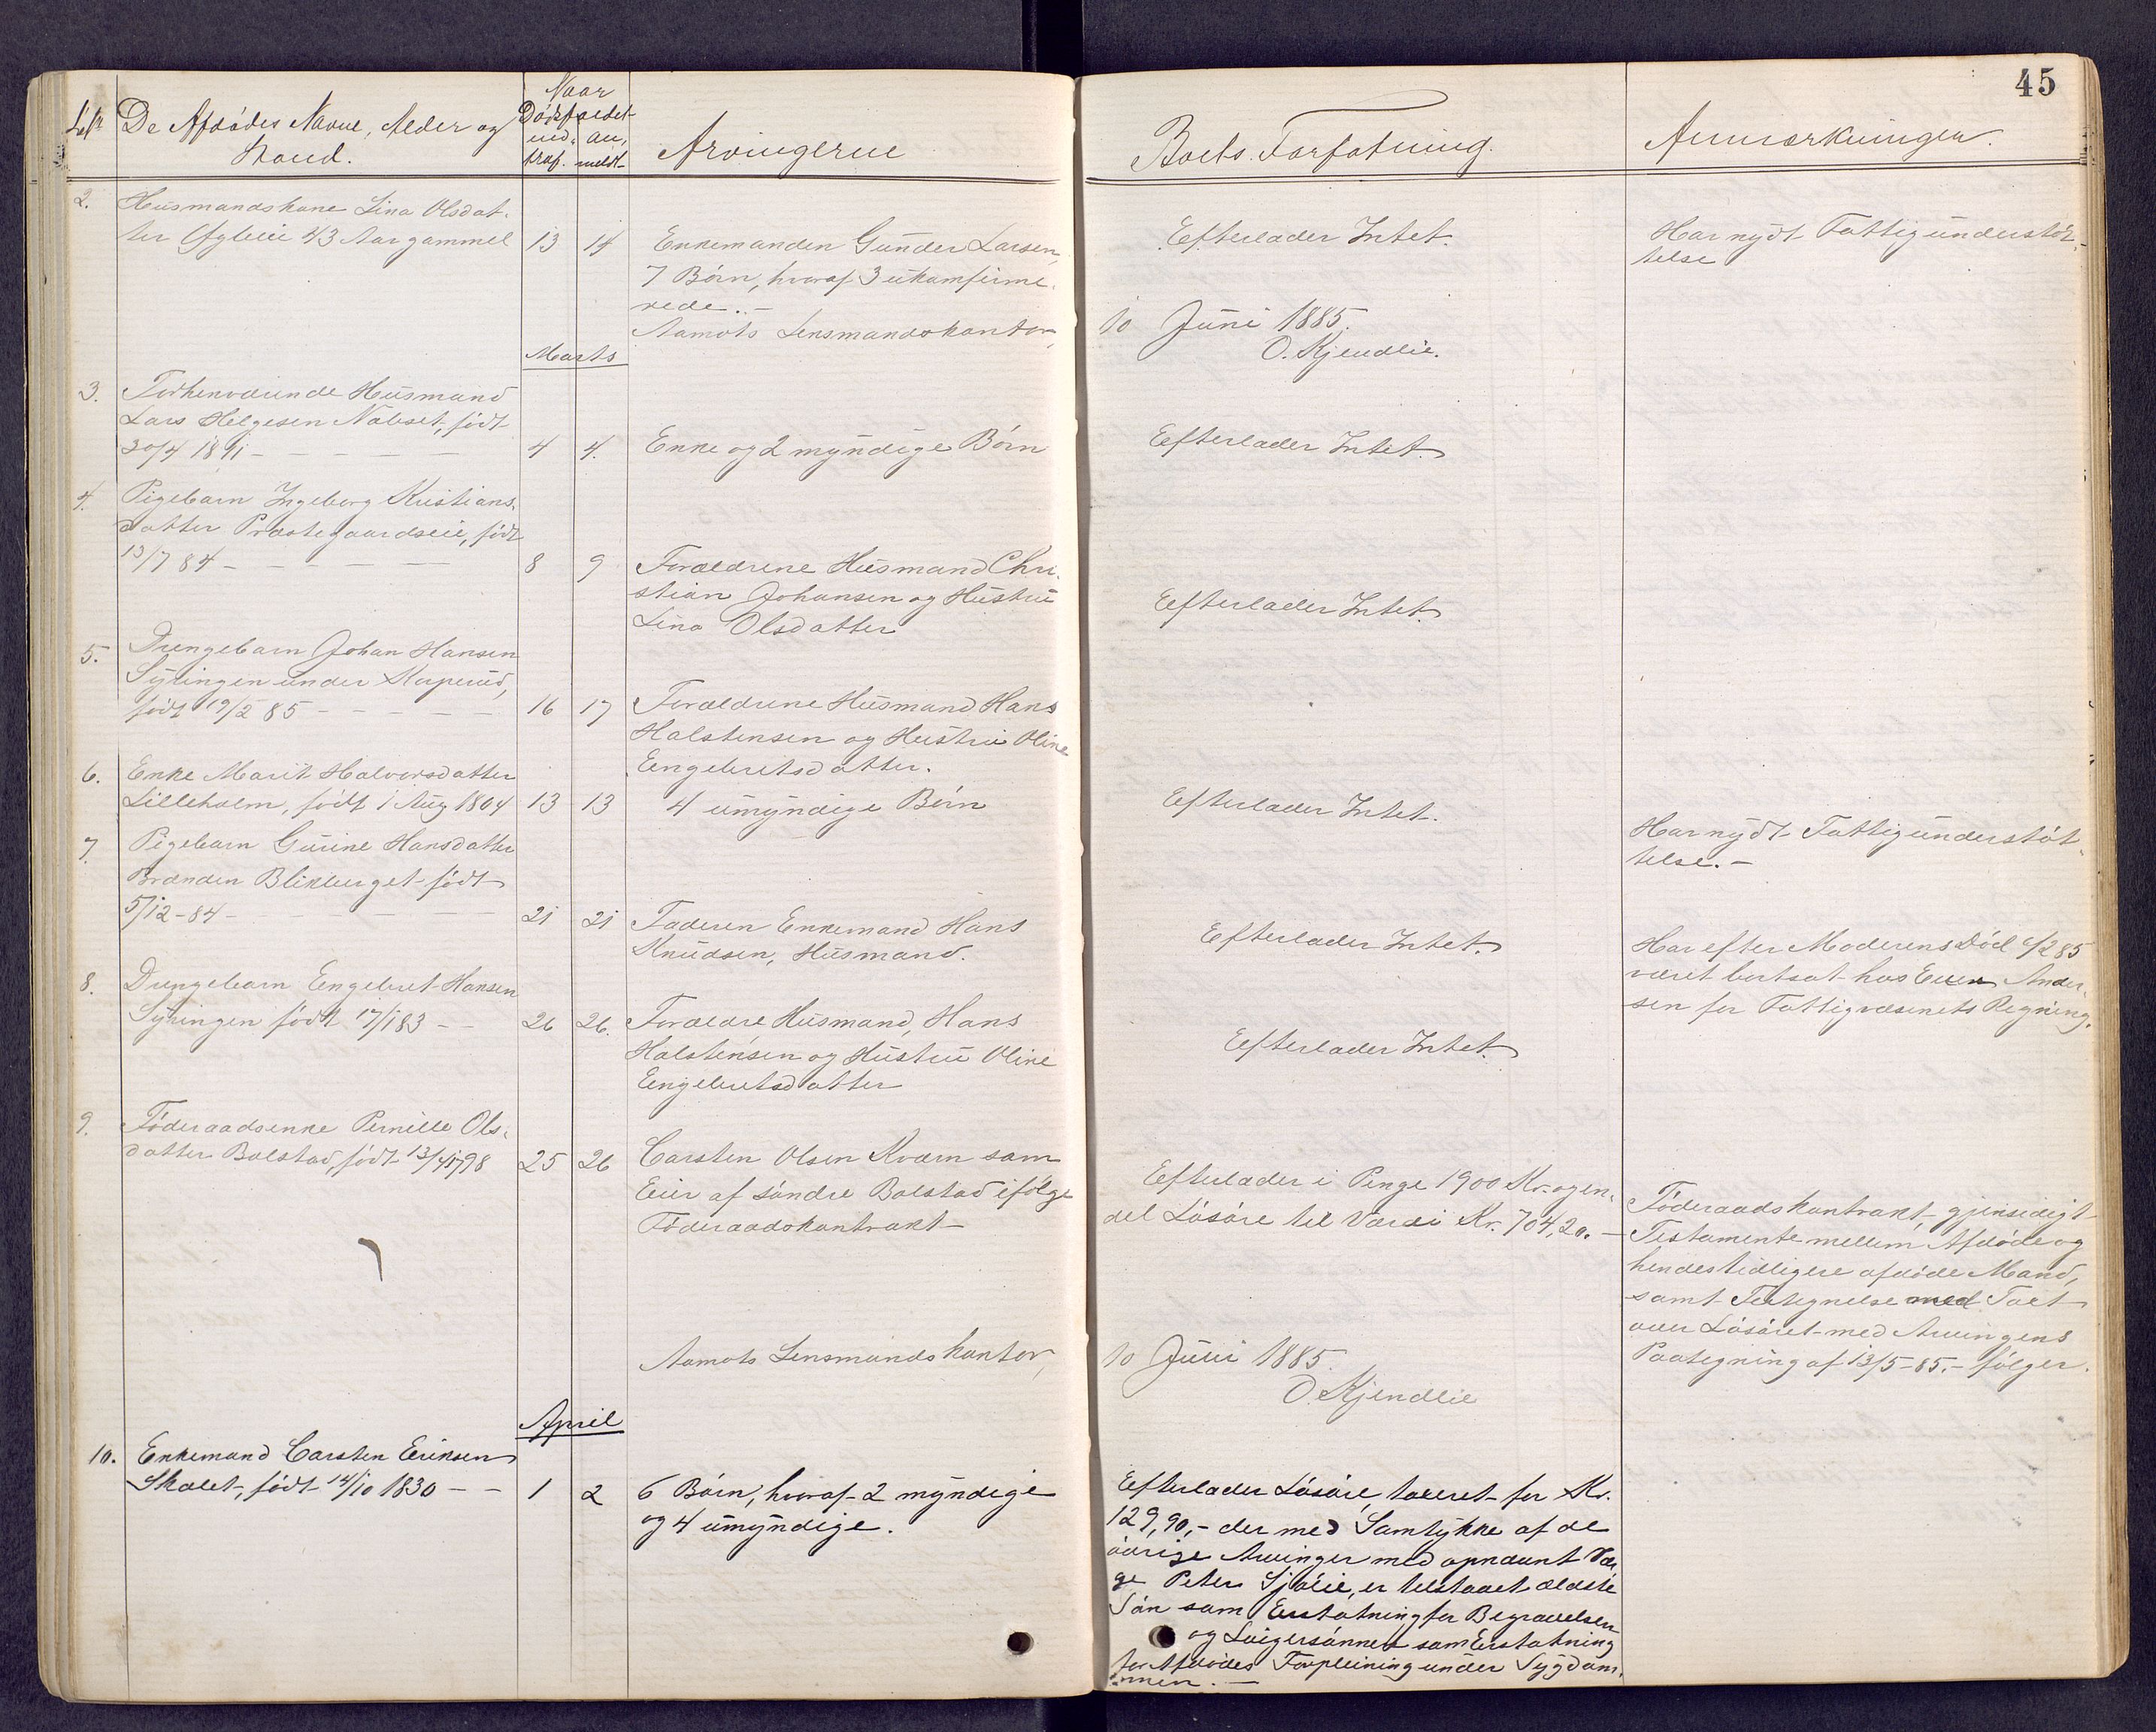 45
De Afdødes Navne, Alder og
Stand.
Naar
Dødsfaldet
ind- an-
traf. meldt
Arvingerne
Boets Forfatning.
Anmærkninger.
2. Husmandskone Lina Olsdat-
ter 43 Aar gammel 13 14 Enkemanden Gunder Larsen,
7 Børn, hvoraf 3 ukonfirme-
rede. -
Aamots Lensmandskontor,
Efterlader Intet.
Har nydt Fattigunderstøt-
telse
10 Juni 1885.
O. Kjendlie.
Marts
3. Forhenværende Husmand
Lars Helgesen Nabset, født
30/4 - - - - - 4 4. Enke og 2 myndige Børn
Efterlader Intet.
4. Pigebarn Ingeborg Kristians-
datter Præstegaardseie, født
13/7 84 - - - - - 8 9 Forældrene Husmand Chri-
stian Johansen og Hustru
Lina Olsdatter
Efterlader Intet.
5. Drengebarn Johan Hansen
Syringen under Korperud,
født 19/2 85 - - - - - 16 17 Forældrene Husmand Hans
Halstensen og Hustru Oline
Engebretsdatter.
6. Enke Marit Halvorsdatter
Lilleholm, født 1 Aug 1804 13 13 4 umyndige Børn
Efterlader Intet.
Har nydt Fattigunderstøt-
telse. -
7. Pigebarn Gurine Hansdatter
Brænden Blikberget født
5/12 - 84 - - - - 21 21 Faderen Enkemand Hans
Knudsen, Husmand.
Efterlader Intet.
Har efter Moderens Død 6/2 85
været bortsat hos Even Ander-
sen for Fattigvæsenets Regning.
8. Drengebarn Engebret Hansen
Syringen født 17/1 83 - - 26 26. Forældre Husmand, Hans
Halstensen og Hustru Oline
Engebretsdatter
Efterlader Intet.
9. Føderaadsenke Pernille Ols-
datter Bolstad, født 13/4 1798 25 26 Carsten Olsen Kværn som
Eier af søndre Bolstad ifølge
Føderaadskontrakt
Efterlader i Penge 1900 Kr. og en
del Løsøre til Værdi Kr. 704,20. -
Føderaadskontrakt, gjensidigt
Testamente mellem Afdøde og
hendes tidligere afdøde Mand,
samt Fortegnelse med Taxt
over Løsøret med Arvingens
Paategning af 13/5 - 85. - følger.
Aamots Lensmandskontor,
10 Juni 1885.
O. Kjendlie
April
10. Enkemand Carsten Eriksen
Skalet, født 14/10 1830 - - 1 2 6 Børn, hvoraf 2 myndige
og 4 umyndige.
Efterlader Løsøre, taxeret for Kr.
129,90, - der med Samtykke af de
øvrige Arvinger med opnævnt Vær-
ge Peter Sjølie, er tilstaaet ældste
Søn som Erstatning for Begravelsen
og Svigersønnen som Erstatning
for Afdødes Forpleining under Sygdom-
men. -